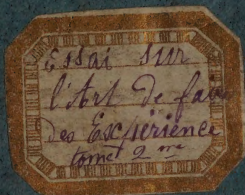 Essai sur
l'Art de faire
des Expérience
tome 2 me